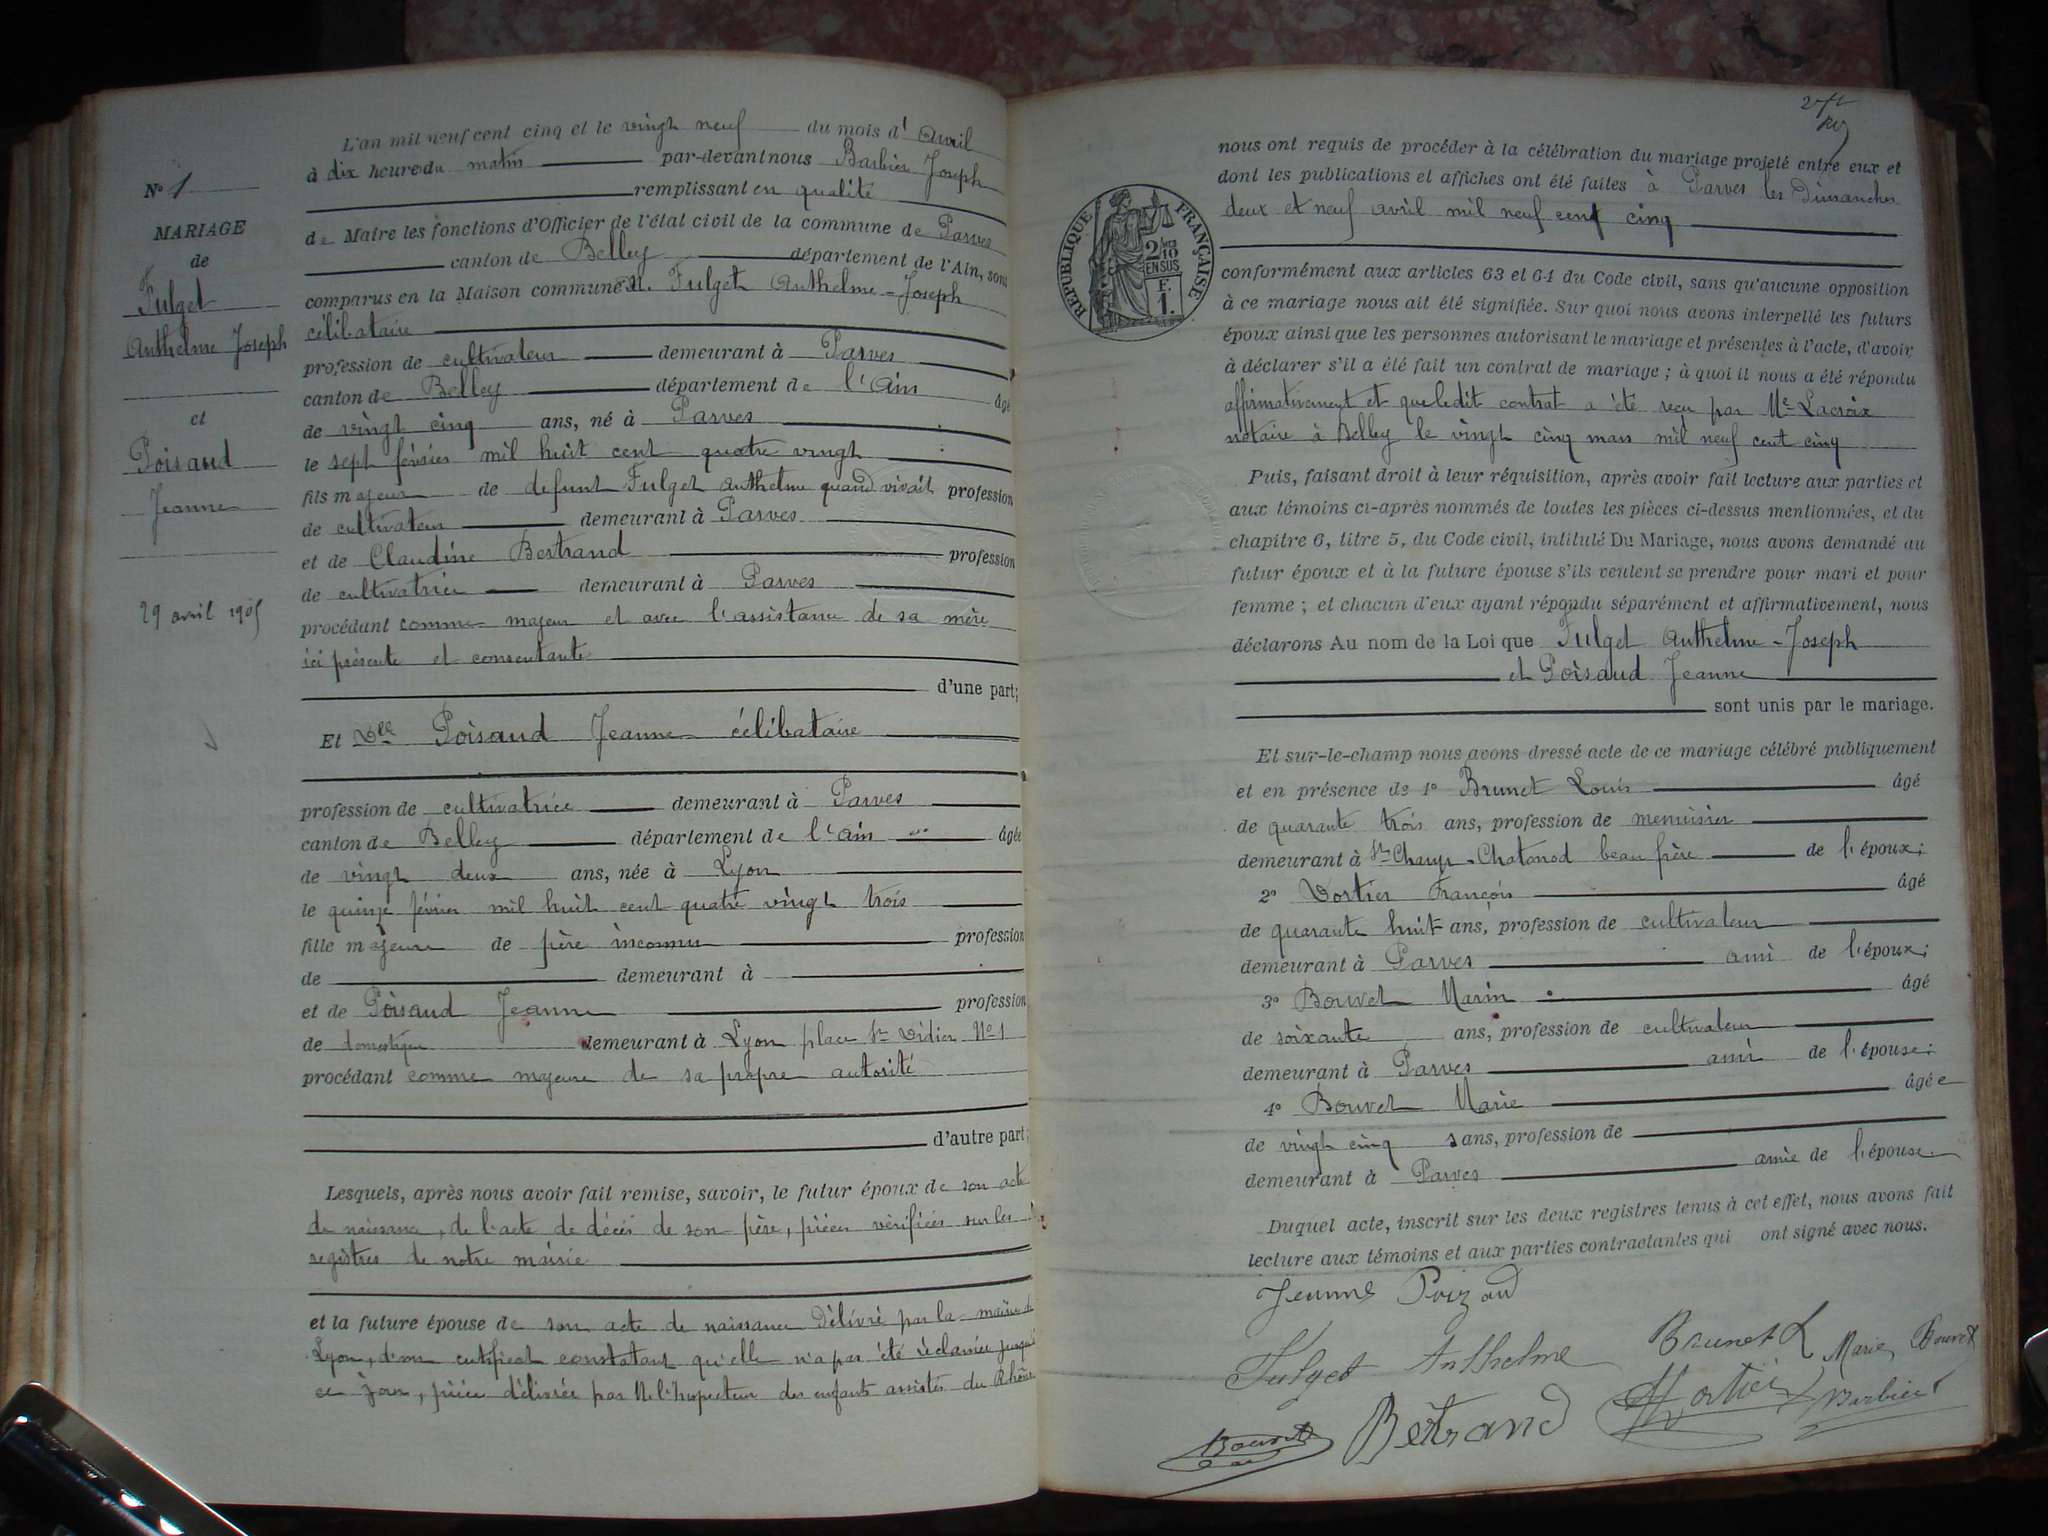 N° 1
MARIAGE
de
Fulget
Anthelme Joseph
et
Poisaud
Jeanne
29 avril 1905
L'an mil neuf cent cinq et le vingt neuf du mois d'avril
à dix heure du matin par-devant nous Barbier Joseph
remplissant en qualité
de Maire les fonctions d'Officier de l'état civil de la commune de Parves
canton de Belley département de l'Ain, sont
comparus en la Maison commune M. Fulget Anthelme-Joseph
célibataire
profession de cultivateur demeurant à Parves
canton de Belley département de l'Ain âgé
de vingt cinq ans, né à Parves
le sept février mil huit cent quatre vingt
fils majeur de defunt Fulget Anthelme quand vivait profession
de cultivateur demeurant à Parves
et de Claudine Bertrand profession
de cultivatrice demeurant à Parves
procédant comme majeur et avec l'assistance de sa mère
ici présente et consentante
d'une part;
Et Dlle Poisaud Jeanne célibataire
profession de cultivatrice demeurant à Parves
canton de Belley département de l'Ain âgée
de vingt deux ans, née à Lyon
le quinze février mil huit cent quatre vingt trois
fille majeure de père inconnu profession
de demeurant à
et de Poisaud Jeanne profession
de domestique demeurant à Lyon place St Didier No 1
procédant comme majeure de sa propre autorité
d'autre part;
Lesquels, après nous avoir fait remise, savoir, le futur époux de son acte
de naissance, de l'acte de décès de son père, pièces vérifiées sur les
registres de notre mairie
et la future épouse de son acte de naissance délivré par la mairie de
Lyon, d'un certificat constatant qu'elle n'a pas été réclamée jusqu'à
ce jour, pièce délivrée par M. l'Inspecteur des enfants assistés du Rhône
nous ont requis de procéder à la célébration du mariage projeté entre eux et
dont les publications et affiches ont été faites à Parves les Dimanches
deux et neuf avril mil neuf cent cinq
RÉPUBLIQUE FRANÇAISE
2/10
EN SUS
F.
1.
conformément aux articles 63 et 64 du Code civil, sans qu'aucune opposition
à ce mariage nous ait été signifiée. Sur quoi nous avons interpellé les futurs
époux ainsi que les personnes autorisant le mariage et présentes à l'acte, d'avoir
à déclarer s'il a été fait un contrat de mariage; à quoi il nous a été répondu
affirmativement et que ledit contrat a été reçu par Me Lacroix
notaire à Belley le vingt cinq mars mil neuf cent cinq
Puis, faisant droit à leur réquisition, après avoir fait lecture aux parties et
aux témoins ci-après nommés de toutes les pièces ci-dessus mentionnées, et du
chapitre 6, titre 5, du Code civil, intitulé Du Mariage, nous avons demandé au
futur époux et à la future épouse s'ils veulent se prendre pour mari et pour
femme; et chacun d'eux ayant répondu séparément et affirmativement, nous
déclarons Au nom de la Loi que Fulget Anthelme-Joseph
et Poisaud Jeanne
sont unis par le mariage.
Et sur-le-champ nous avons dressé acte de ce mariage célébré publiquement
et en présence de 1° Brunet Louis âgé
de quarante trois ans, profession de menuisier
demeurant à St Champ-Chatonod beau frère de l'époux;
2° Vortier François âgé
de quarante huit ans, profession de cultivateur
demeurant à Parves ami de l'époux;
3° Bouvet Marin âgé
de soixante ans, profession de cultivateur
demeurant à Parves ami de l'épouse;
4° Bouvet Marie âgée
de vingt cinq ans, profession de
demeurant à Parves amie de l'épouse.
Duquel acte, inscrit sur les deux registres tenus à cet effet, nous avons fait
lecture aux témoins et aux parties contractantes qui ont signé avec nous.
Jeanne Poizaud
Fulget Anthelme Brunet L Marie Bouvet
Bouvet Bertrand Vortier Barbier